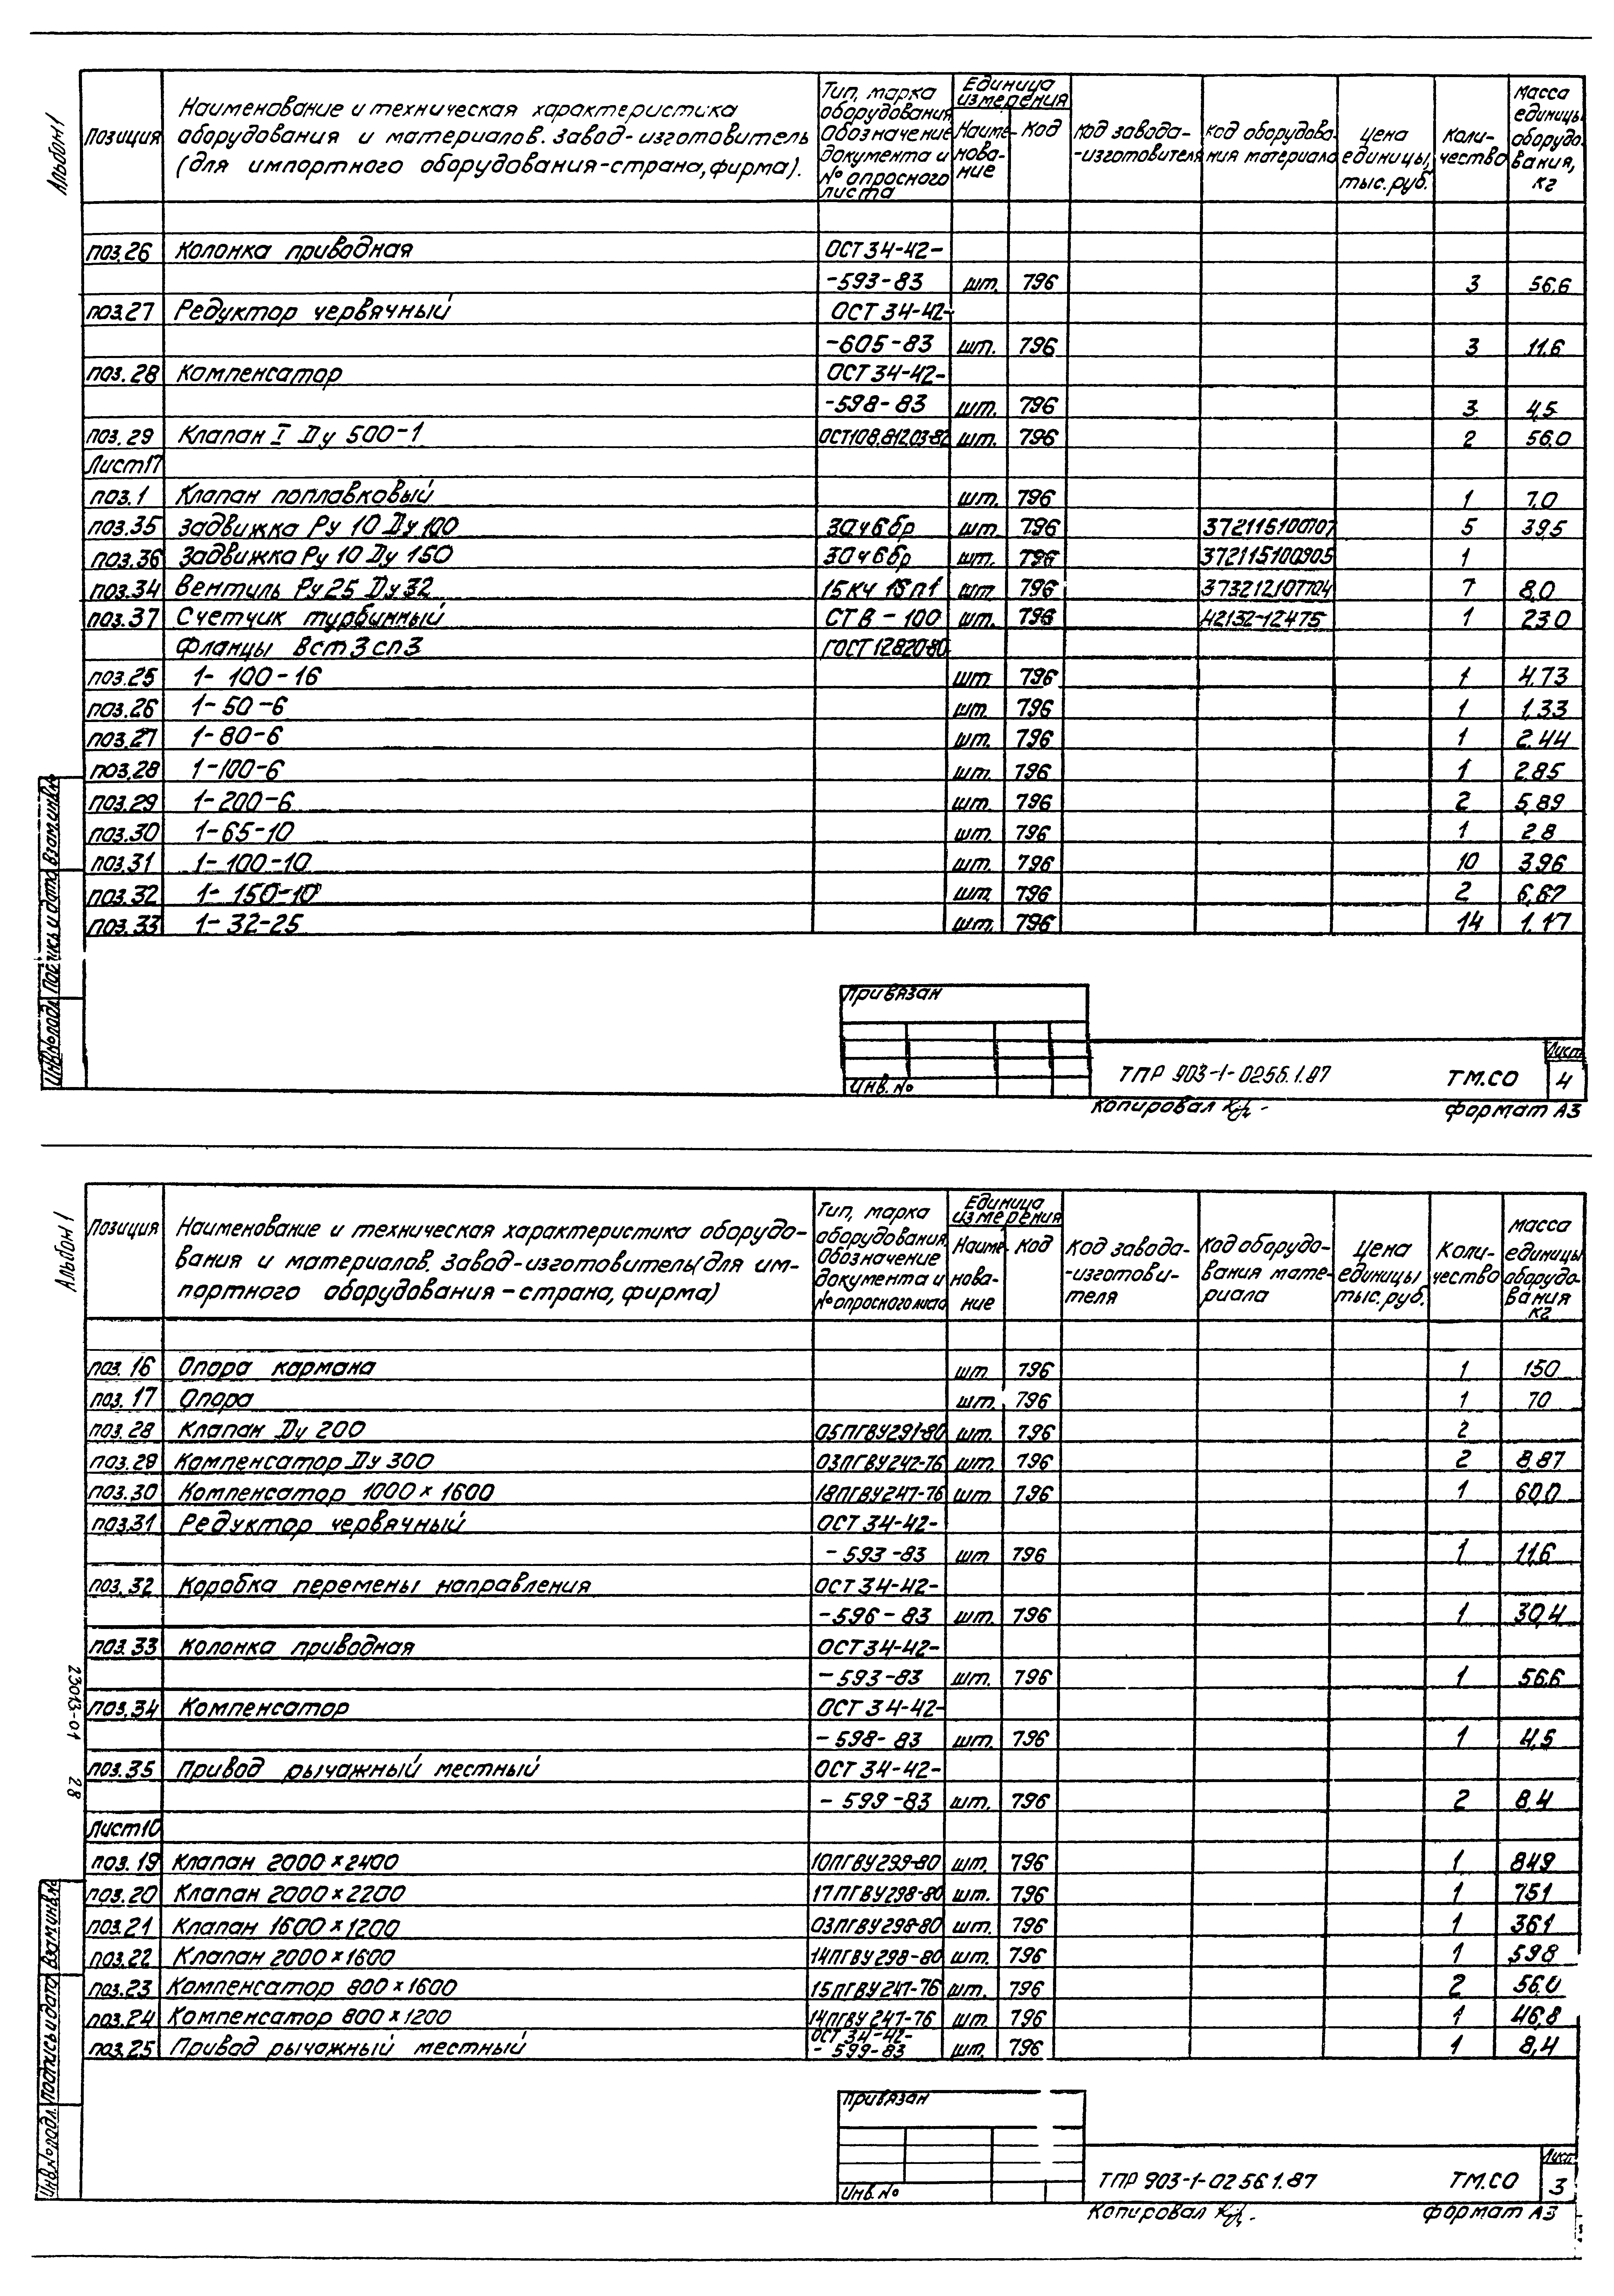 Альбом 1
Позиция
Наименование и техническая характеристика
оборудования и материалов. Завод-изготовитель
(для импортного оборудования-страна, фирма).
Тип, марка
оборудования
Обозначение
документа и
№ опросного
листа
Единица
измерения
Наиме-
нова-
ние
Код
Код завода-
-изготовителя
Код оборудова-
ния материала
Цена
единицы,
тыс. руб.
Коли-
чество
Масса
единицы
оборудо-
вания,
кг
поз.26 Колонка приводная ОСТ 34-42-
-593-83 шт. 796 3 56,6
поз.27 Редуктор червячный ОСТ 34-42-
-605-83 шт. 796 3 11,6
поз.28 Компенсатор ОСТ 34-42-
-598-83 шт. 796 3 4,5
поз.29 Клапан I Ду 500-1 ОСТ108.812.03-82 шт. 796 2 56,0
Лист17
поз.1 Клапан поплавковый шт. 796 1 7,0
поз.35 Задвижка Ру 10 Ду 100 30ч6бр шт. 796 372115100707 5 39,5
поз.36 Задвижка Ру 10 Ду 150 30ч6бр шт. 796 372115100905 1
поз.34 Вентиль Ру 25 Ду 32 15кч 16п1 шт. 796 373212107704 7 8,0
поз.37 Счетчик турбинный СТВ-100 шт. 796 42132-12475 1 23,0
Фланцы Вст3сп3 ГОСТ 12820-80
поз.25 1-100-16 шт 796 1 4,73
поз.26 1-50-6 шт. 796 1 1,33
поз.27 1-80-6 шт. 796 1 2,44
поз.28 1-100-6 шт. 796 1 2,85
поз.29 1-200-6 шт. 796 2 5,89
поз.30 1-65-10 шт. 796 1 2,8
поз.31 1-100-10 шт. 796 10 3,96
поз.32 1-150-10 шт. 796 2 6,67
поз.33 1-32-25 шт. 796 14 1,17
Инв.№подл. Подпись и дата Взам.инв.№
Привязан
Инв. №
ТПР 903-1-0256.1.87 ТМ.СО
Лист
4
Копировал
Формат А3
Альбом 1
Позиция
Наименование и техническая характеристика оборудо-
вания и материалов. Завод-изготовитель(для им-
портного оборудования-страна, фирма)
Тип, марка
оборудования.
Обозначение
документа и
№ опросного листа
Единица
измерения
Наиме-
нова-
ние
Код
Код завода-
-изготови-
теля
Код оборудо-
вания мате-
риала
Цена
единицы
тыс. руб.
Коли-
чество
масса
единицы
оборудо-
вания
кг
поз. 16 Опора кармана шт 796 1 150
поз. 17 Опора шт. 796 1 70
поз.28 Клапан Ду 200 05ПГВУ291-80 шт. 796 2
поз.29 Компенсатор Ду 300 03ПГВУ242-76 шт. 796 2 8,87
поз.30 Компенсатор 1000×1600 18ПГВУ247-76 шт 796 1 60,0
поз.31 Редуктор червячный ОСТ 34-42-
-593-83 шт 796 1 11,6
поз.32 Коробка перемены направления ОСТ 34-42-
-596-83 шт. 796 1 30,4
поз.33 Колонка приводная ОСТ 34-42-
-593-83 шт. 796 1 56,6
поз.34 Компенсатор ОСТ 34-42-
-598-83 шт. 796 1 4,5
поз.35 Привод рычажный местный ОСТ 34-42-
-599-83 шт. 796 2 8,4
Лист10
поз. 19 Клапан 2000×2400 10ПГВУ299-80 шт. 796 1 849
поз.20 Клапан 2000×2200 17ПГВУ298-80 шт. 796 1 751
поз.21 Клапан 1600×1200 03ПГВУ298-80 шт. 796 1 361
поз.22 Клапан 2000×1600 14ПГВУ298-80 шт. 796 1 598
поз.23 Компенсатор 800×1600 15ПГВУ247-76 шт. 796 2 56,0
поз.24 Компенсатор 800×1200 14ПГВУ247-76 шт. 796 1 46,8
поз.25 Привод рычажный местный ОСТ 34-42-
-599-83 шт. 796 1 8,4
23013-01 28
Инв.№подл. Подпись и дата Взам.инв.№
Привязан
Инв. №
ТПР 903-1-0256.1.87 ТМ.СО
Лист
3
Копировал
Формат А3